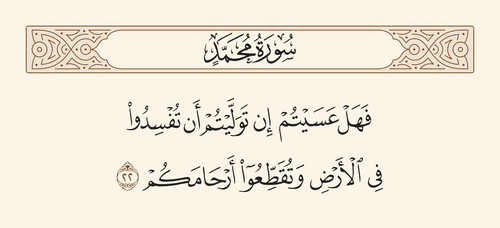 سُورَةُ مُحَمَّدٍ
فَهَلْ عَسَيْتُمْ إِن تَوَلَّيْتُمْ أَن تُفْسِدُوا۟
فِي ٱلْأَرْضِ وَتُقَطِّعُوٓا۟ أَرْحَامَكُمْ ٢٢